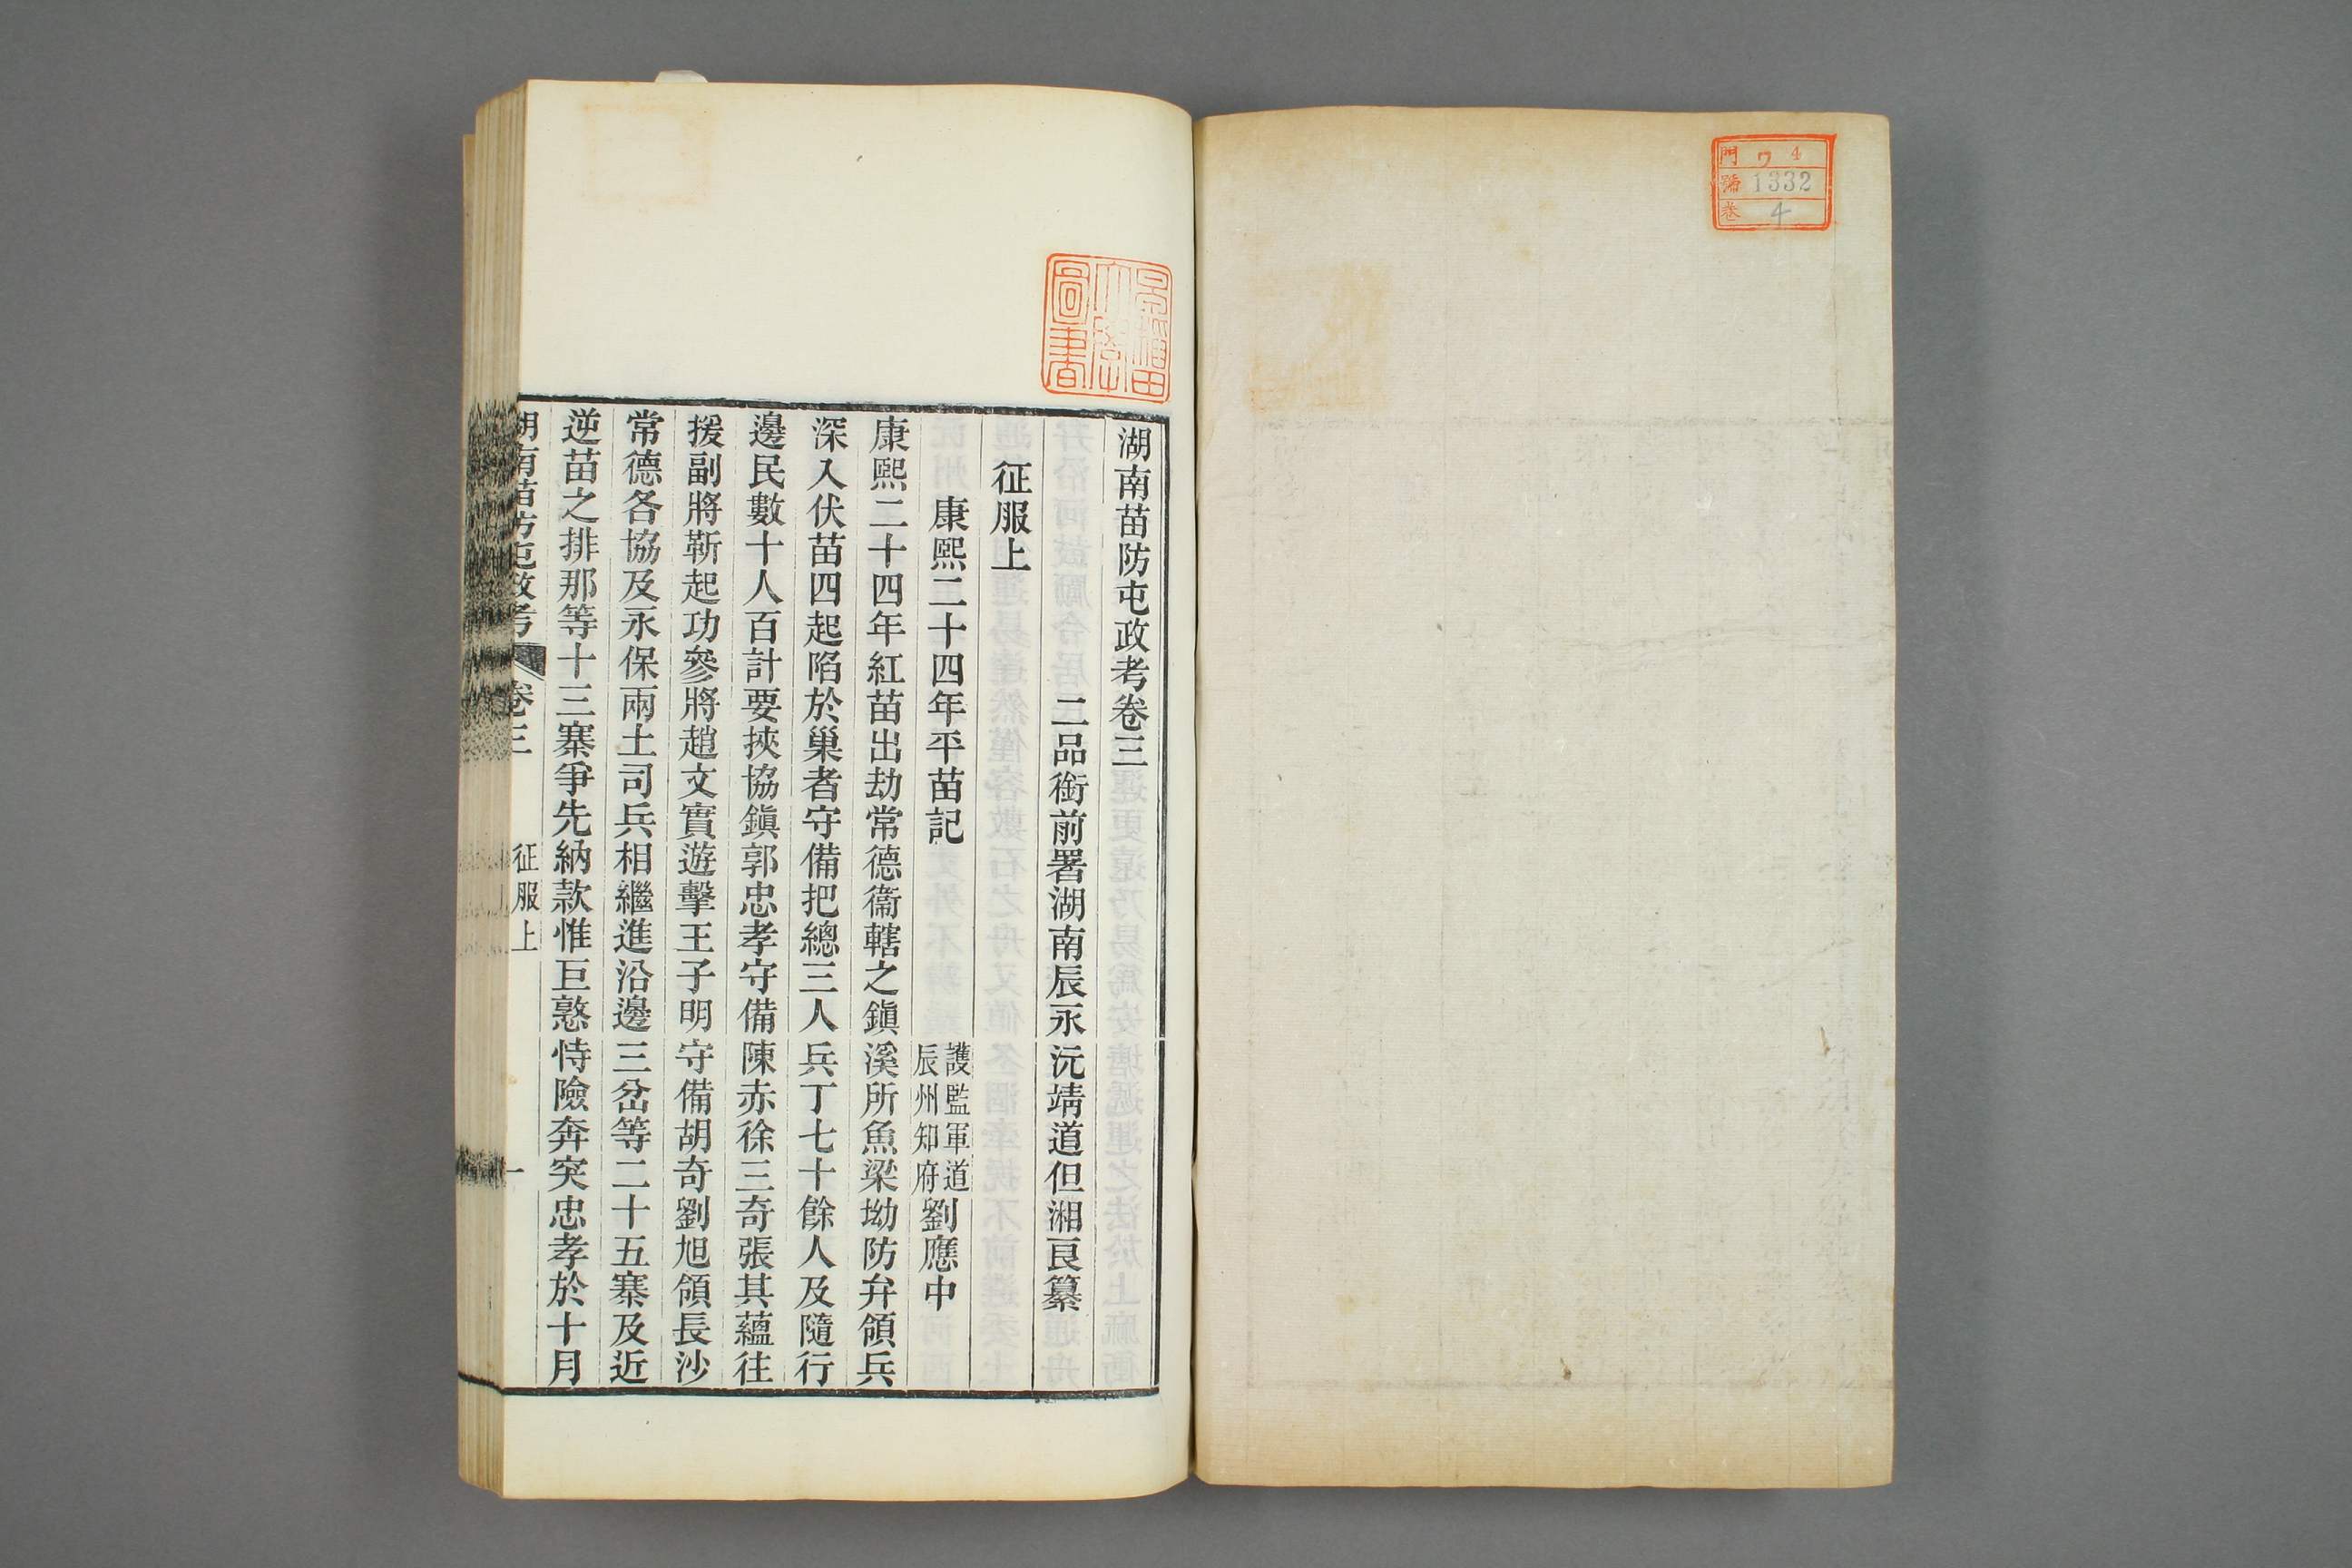 門 ワ 4
號 1332
卷 4
早稲田
大學
圖書
湖南苗防屯政考卷三
二品銜前署湖南辰永沅靖道但湘良纂
征服上
康熙二十四年平苗記
護監軍道
辰州知府
劉應中
康熙二十四年紅苗出劫常德衞轄之鎭溪所魚梁坳防弁領兵
深入伏苗四起陷於巢者守備把總三人兵丁七十餘人及隨行
邊民數十人百計要挾協鎭郭忠孝守備陳赤徐三奇張其蘊往
援副將靳起功參將趙文實遊擊王子明守備胡奇劉旭領長沙
常德各協及永保兩土司兵相繼進沿邊三岔等二十五寨及近
逆苗之排那等十三寨爭先納款惟巨憝恃險奔突忠孝於十月
湖南苗防屯政考 卷三 征服上 一